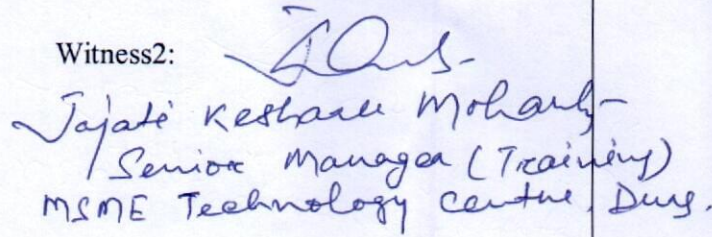 Witness2:
Jajati Keshari Mohanty
Senior Manager (Training)
MSME Technology Centre, Durg.